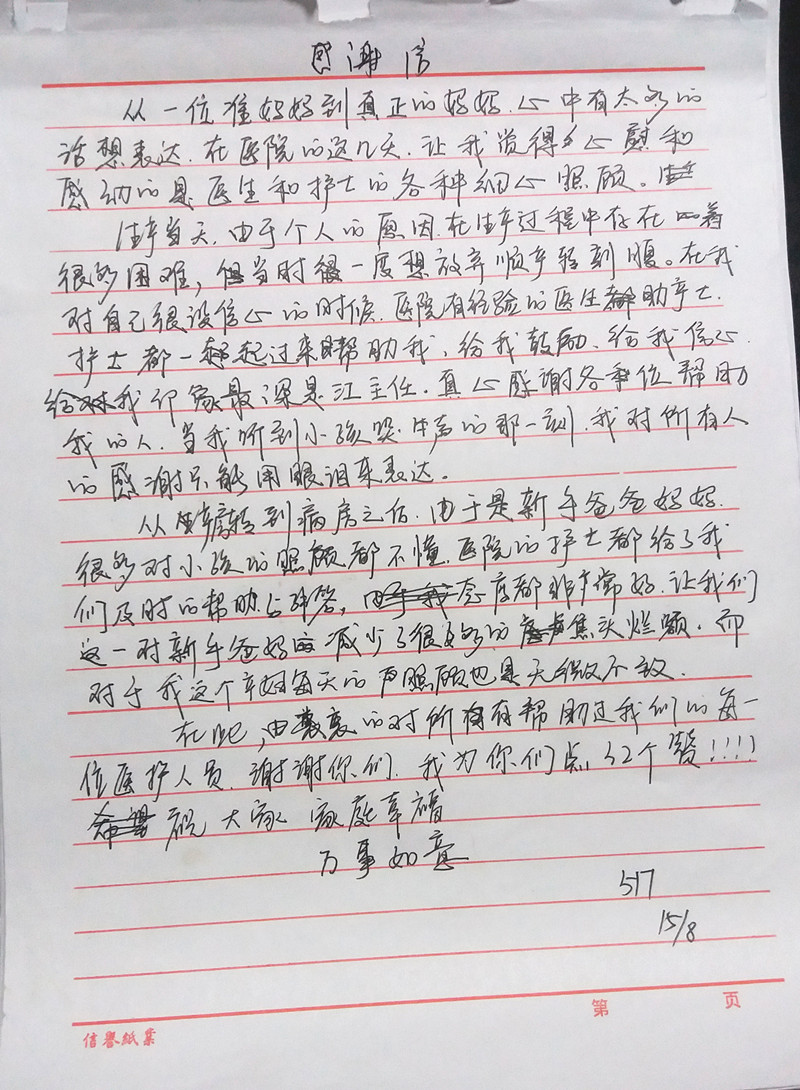 感谢信
从一位准妈妈到真正的妈妈.心中有太多的
话想表达.在医院的这几天.让我觉得心慰和
感动的是医生和护士的各种细心照顾。
生产当天.由于个人的原因.在生产过程中存在着
很多困难，当时很一度想放弃顺产转剖腹。在我
对自己很没信心的时候.医院有经验的医生助产士.
护士都一起过来帮助我.给我鼓励.给我信心.
给我印象最深是江主任.真心感谢各位帮助
我的人.当我听到小孩哭声的那一刻.我对所有人
的感谢只能用眼泪来表达。
从产房转到病房之后.由于是新手爸爸妈妈.
很多对小孩的照顾都不懂.医院的护士都给了我
们及时的帮助与解答，态度都非常好.让我们
这一对新手爸妈减少了很多的焦头烂额.而
对于我这个产妇每天的照顾也是无微不致.
在此,由衷的对所有帮助过我们的每一
位医护人员.谢谢你们.我为你们点32个赞!!!!
祝大家家庭幸福
万事如意
517
15/8
第 页
信誉紙業